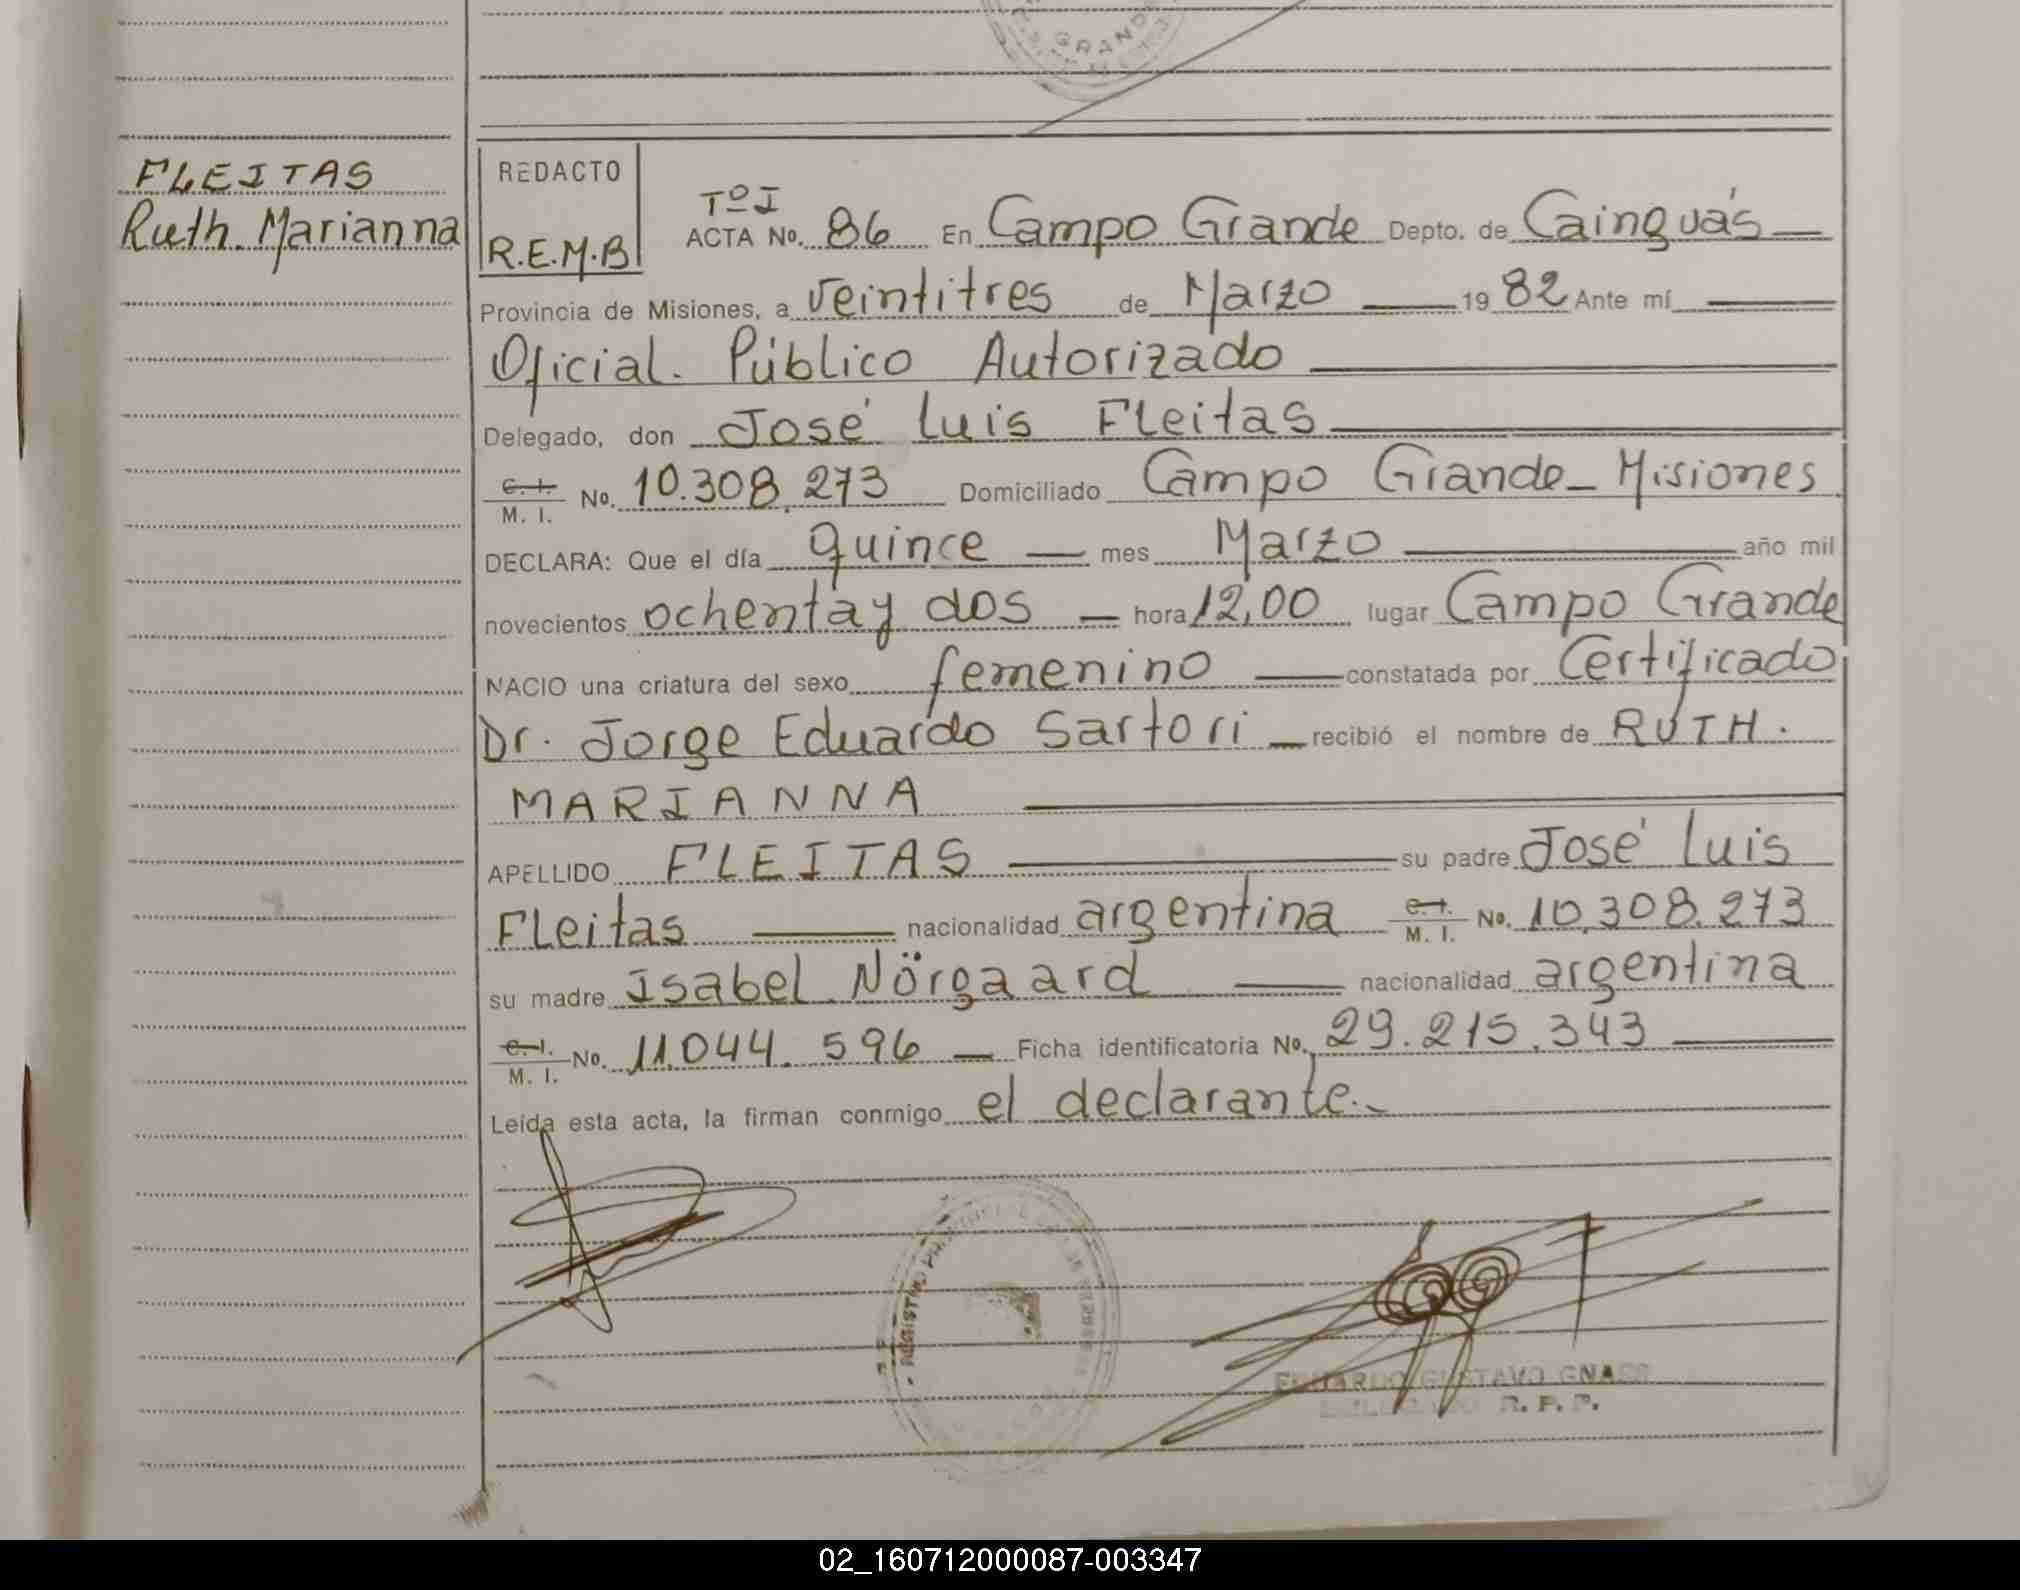 GRANDE
FLEITAS
Ruth. Marianna
REDACTO
R.E.M.B
Tº I
ACTA No. 86 En Campo Grande Depto. de Cainguás
Provincia de Misiones, a veintitres de Marzo 1982 Ante mí
Oficial. Público Autorizado
Delegado, don José Luis Fleitas
C. I. / M. I. No. 10.308.273 Domiciliado Campo Grande - Misiones
DECLARA: Que el día quince mes Marzo año mil
novecientos ochenta y dos hora 12,00 lugar Campo Grande
NACIO una criatura del sexo femenino constatada por Certificado
Dr. Jorge Eduardo Sartori recibió el nombre de RUTH.
MARIANNA
APELLIDO FLEITAS su padre José Luis
Fleitas nacionalidad argentina C. I. / M. I. No. 10.308.273
su madre Isabel Nörgaard nacionalidad argentina
C. I. / M. I. No. 11.044.596 Ficha identificatoria No. 29.215.343
Leída esta acta, la firman conmigo el declarante.-
REGISTRO PROVINCIAL DE LAS PERSONAS
EDUARDO GUSTAVO GNASS
DELEGADO R. P. P.
02_160712000087-003347